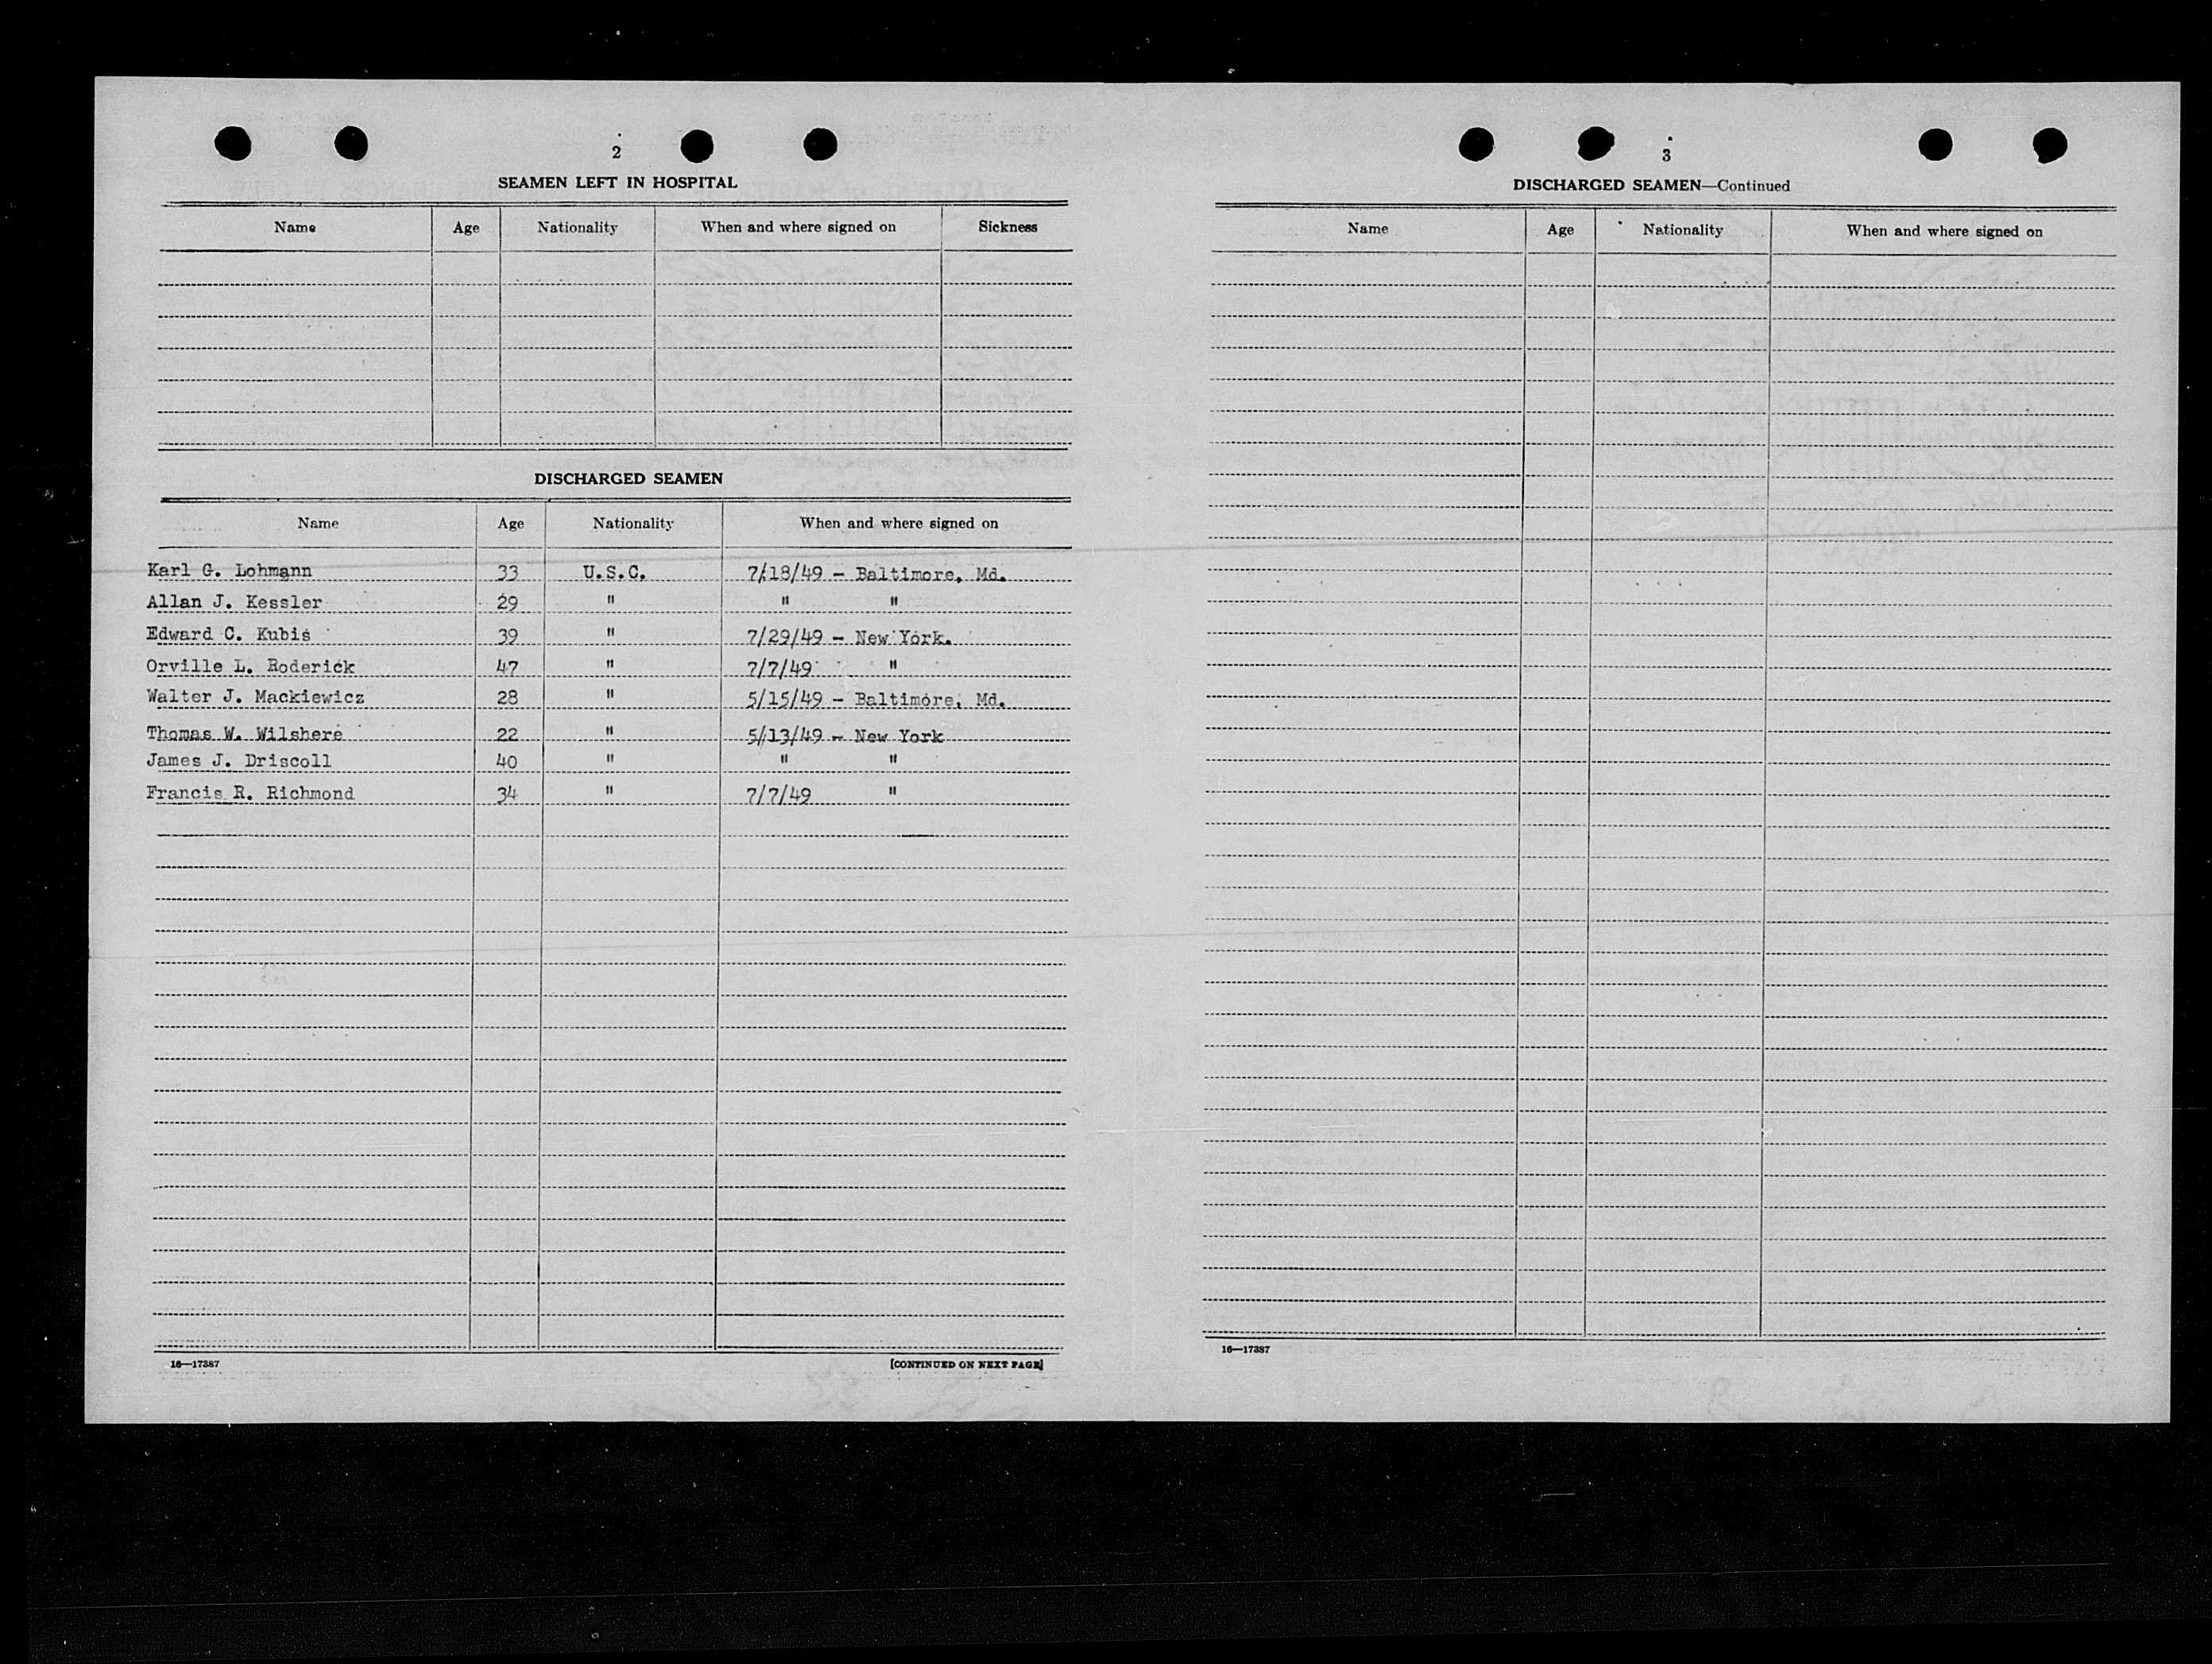 2
SEAMEN LEFT IN HOSPITAL
Name Age Nationality When and where signed on Sickness
DISCHARGED SEAMEN
Name Age Nationality When and where signed on
Karl G. Lohmann 33 U.S.C. 7/18/49 - Baltimore, Md.
Allan J. Kessler 29 " " "
Edward C. Kubis 39 " 7/29/49 - New York.
Orville L. Roderick 47 " 7/7/49 "
Walter J. Mackiewicz 28 " 5/15/49 - Baltimore, Md.
Thomas W. Wilshere 22 " 5/13/49 - New York
James J. Driscoll 40 " " "
Francis R. Richmond 34 " 7/7/49 "
16—17387 [CONTINUED ON NEXT PAGE]
3
DISCHARGED SEAMEN—Continued
Name Age Nationality When and where signed on
16—17387